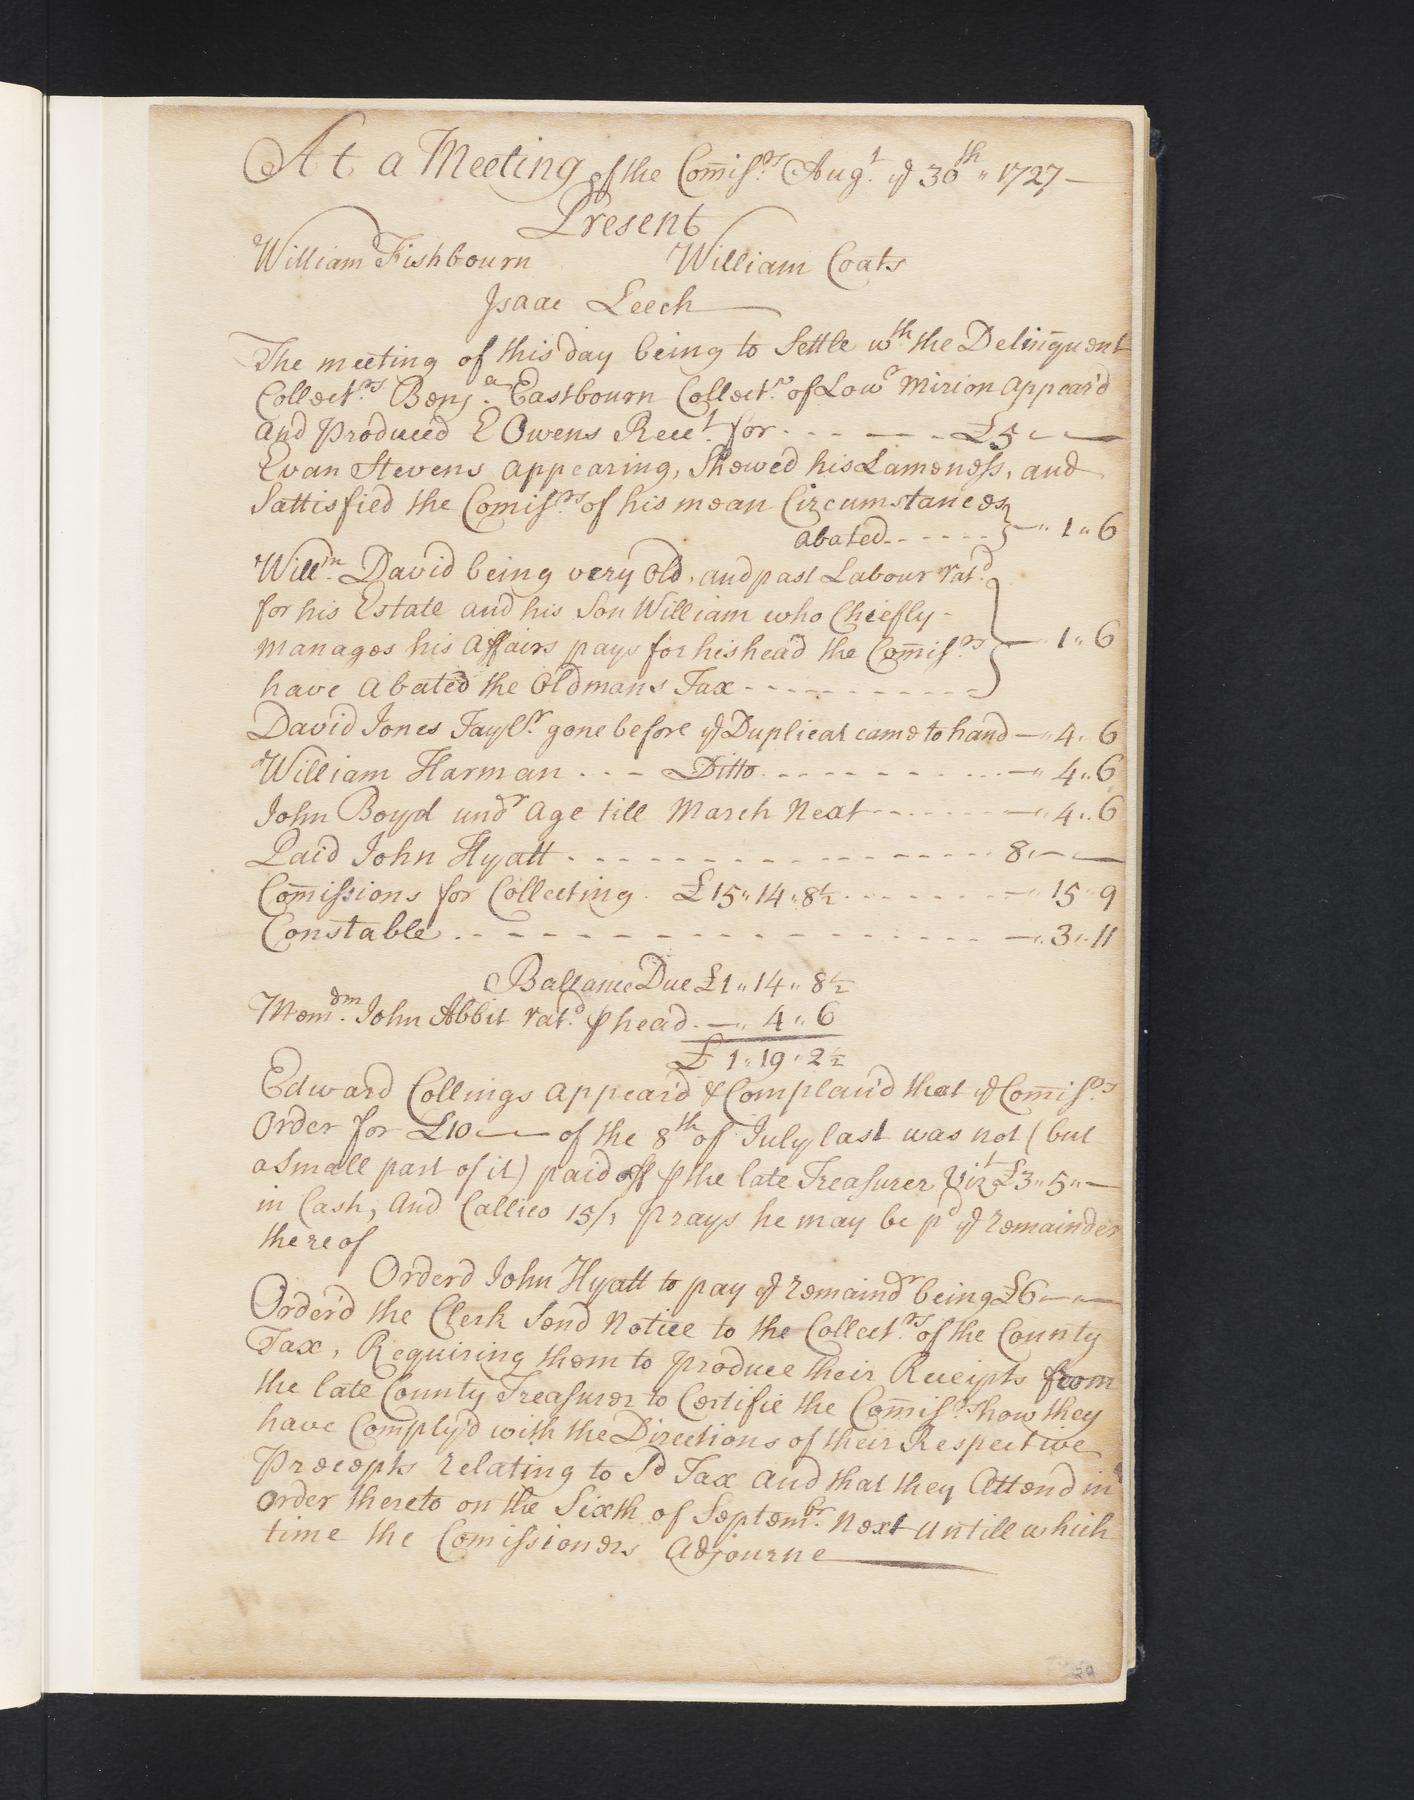 At a Meeting of the Comiss.rs Aug.t ye 30th 1727
Present
William Fishbourn William Coats
Isaac Leech
The meeting of this day being to Settle wth the Delinquent
Collect.rs Benj.a Eastbourn Collect.r of Lowr Mirion appear'd
and Produced E Owens Recet for - - - £5 " — " —
Evan Stevens appearing, Shewed his Lameness, and
Sattisfied the Comiss.rs of his mean Circumstances
abated - - - - - — " 1 " 6
Will.m David being very Old, and past Labour rat.d
for his Estate and his Son William who Chiefly -
manages his Affairs pays for his head the Comiss.rs — " 1 " 6
have abated the Oldmans Tax - - - - - - - - - -
David Jones Tayl.r gone before ye Duplicat came to hand — " 4 " 6
William Harman - - - Ditto - - - - - - - - - — " 4 " 6
John Boyd undr age till March Next - - - - - - — " 4 " 6
Paid John Hyatt - - - - - - - - - - - - - - - 8 " — " —
Comissions for Collecting £15 " 14 " 8½ - - - - - — " 15 " 9
Constable - - - - - - - - - - - - - - - — " 3 " 11
Ballance Due £1 " 14 " 8½
Mem.dm John Abbit rat.d ꝑ head — " 4 " 6
£ 1 " 19 " 2½
Edward Collings appear'd & Complain'd that ye Comiss.rs
Order for £10 " — " — of the 8th of July last was not (but
a Small part of it) paid off ꝑ the late Treasurer Vizt £3 " 5 " —
in Cash, and Callico 15/, Prays he may be pd ye remainder
thereof
Orderd John Hyatt to pay ye remaindr being £6 " — " —
Order'd the Clerk Send Notice to the Collect.rs of the County
Tax, Requiring them to produce their Receipts from
the late County Treasurer to Certifie the Comiss.rs how they
have Comply'd with the Directions of their Respective
Precepts relating to Sd Tax and that they Attend in
order thereto on the Sixth of Septem.br Next untill which
time the Comissioners adjourne